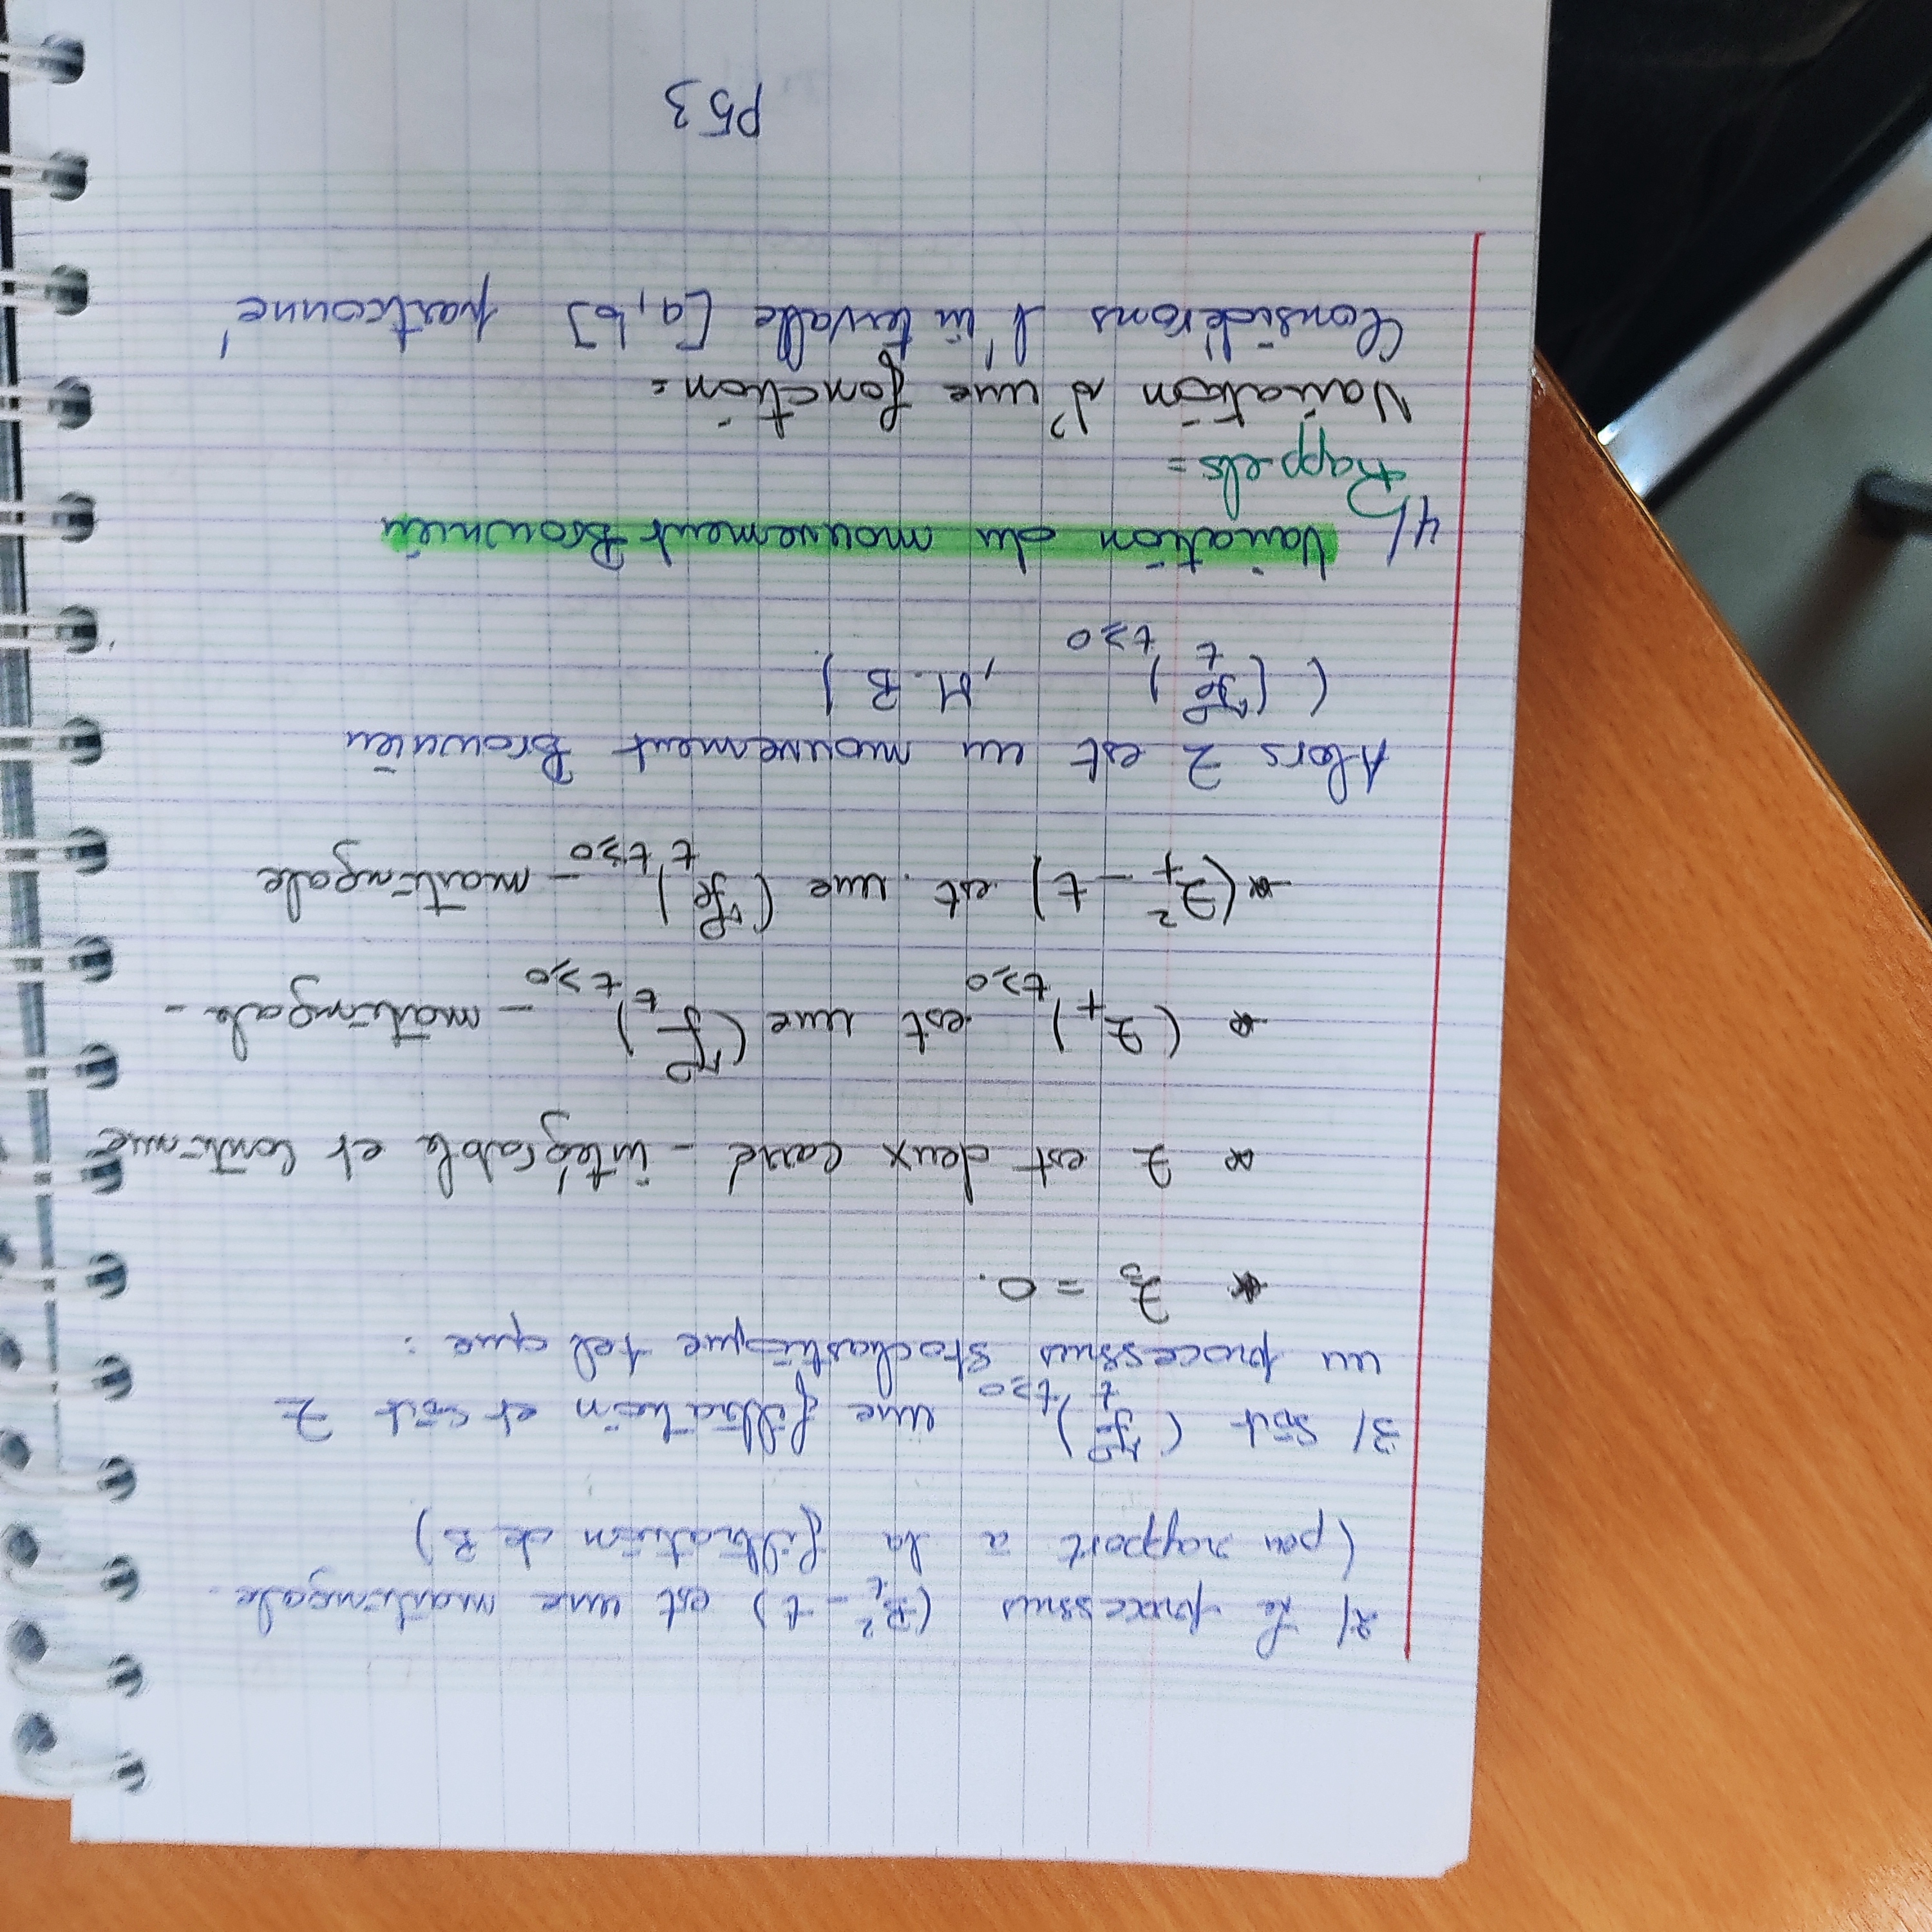 2/ Le processus (B_t² - t) est une martingale.
(par rapport à la filtration de B)
3/ Soit (ℱ_t)_{t≥0} une filtration et soit Z
un processus stochastique tel que :
* Z_0 = 0.
* Z est deux carré - intégrable et continue
* (Z_t)_{t≥0} est une (ℱ_t)_{t≥0} - martingale -
* (Z_t² - t) est une (ℱ_t)_{t≥0} - martingale
Alors Z est un mouvement Brownien
((ℱ_t)_{t≥0} , M.B)
4/ Variation du mouvement Brownien
Rappels =
Variation d'une fonction =
Considérons l'intervalle [a, b] partionné
P53